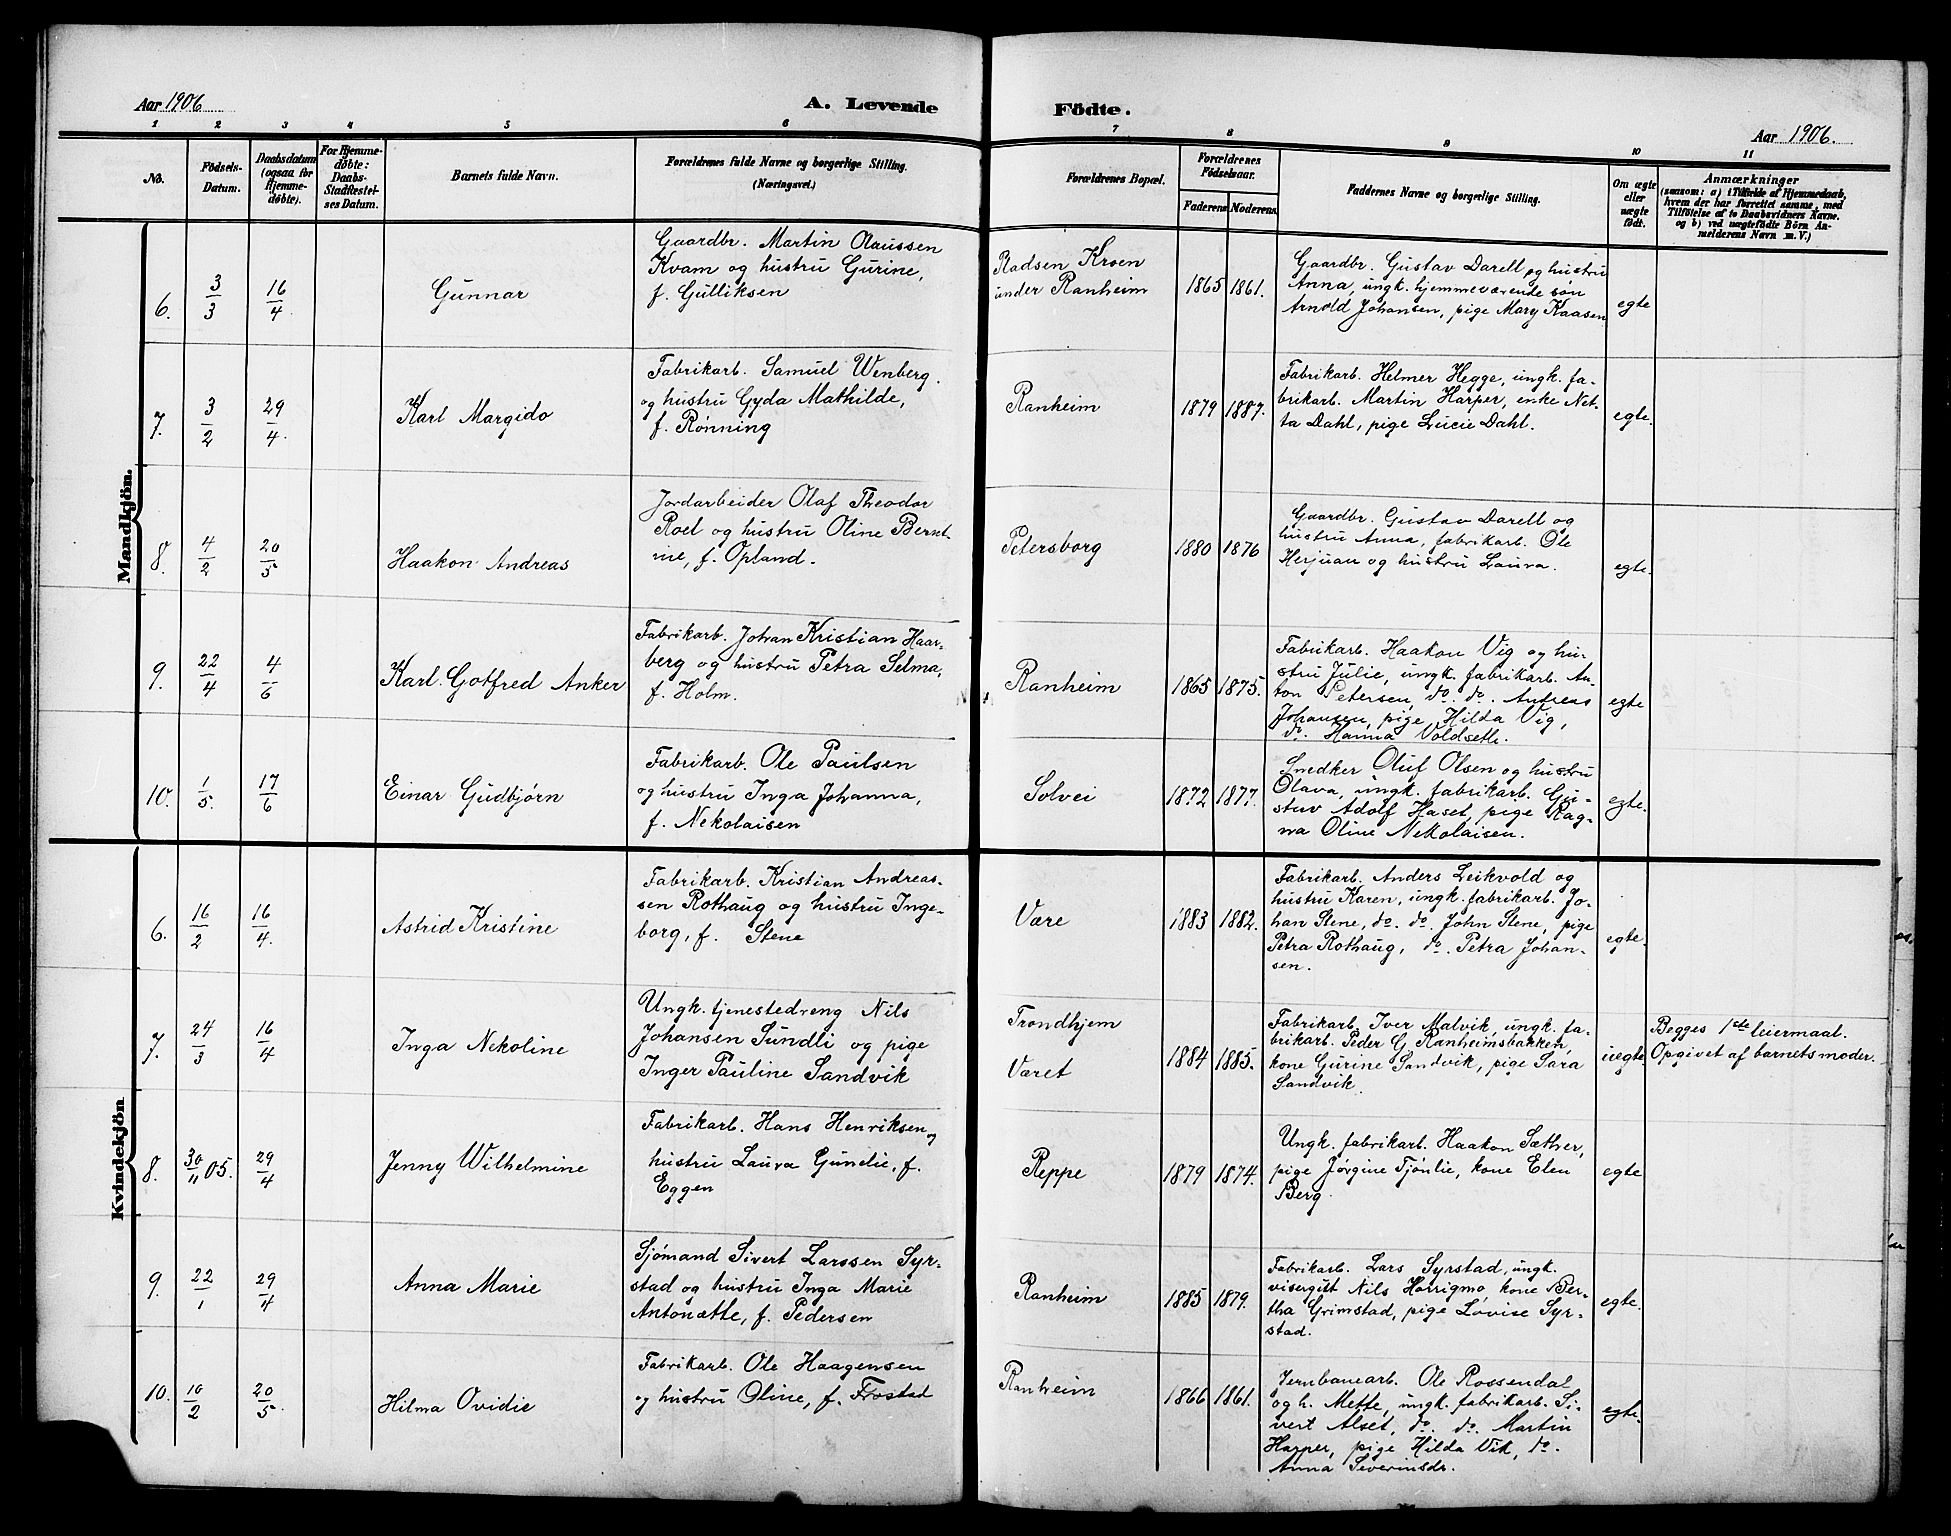 Aar 1906
A. Levende
Födte.
Aar 1906.
1 2 3 4 5 6 7 8 9 10 11
No.
Födsels-
Datum.
Daabsdatum
(ogsaa for
Hjemme-
döbte).
For Hjemme-
döbte:
Daabs-
Stadfæstel-
ses Datum.
Barnets fulde Navn.
Forældrenes fulde Navne og borgerlige Stilling.
(Næringsvei.)
Forældrenes Bopæl.
Forældrenes
Födselsaar.
Faderens Moderens
Faddernes Navne og borgerlige Stilling.
Om ægte
eller
uægte
födt.
Anmærkninger
(saasom: a) i Tilfælde af Hjemmedaab,
hvem der har forrettet samme, med
Tilföielse af to Daabsvidners Navne.
og b) ved uægtefödte Börn An-
melderens Navn m.V.)
Mandkjön.
6.
3/3
16/4
Gunnar
Gaardbr. Martin Olaussen
Kvam og hustru Gurine,
f. Gulliksen
Radsen Kroen
under Ranheim
1865 1861.
Gaardbr. Gustav Darell og hustru
Anna, ungk. hjemmeværende søn
Arnold Johansen, pige Mary Kaasen
egte
7.
3/2
29/4.
Karl Margido
Fabrikarb. Samuel Wenberg.
og hustru Gyda Mathilde,
f. Rønning
Ranheim
1879 1887.
Fabrikarb. Helmer Hegge, ungk. fa-
brikarb. Martin Harper, enke Net-
ta Dahl, pige Lucie Dahl.
egte.
8.
4/2
20/5
Haakon Andreas
Jordarbeider Olaf Theodor
Roel og hustru Oline Bernt-
ine, f. Opland.
Petersborg
1880 1876
Gaardbr. Gustav Darell og
hustru Anna, fabrikarb. Ole
Herjuan og hustru Laura.
egte.
9.
22/4
4/6
Karl Gotfred Anker
Fabrikarb. Johan Kristian Haar-
berg og hustru Petra Selma,
f. Holm.
Ranheim
1865 1875.
Fabrikarb. Haakon Vig og hu-
stru Julie, ungk. fabrikarb. An-
ton Petersen, do. do. Andreas
Johansen, pige Hilda Vig,
do. Hanna Voldseth.
egte
10.
1/5.
17/6
Einar Gudbjørn
Fabrikarb. Ole Paulsen
og hustru Inga Johanna,
f. Nekolaisen
Solvei
1872 1877.
Snedker Oluf Olsen og hustru
Olava, ungk. fabrikarb. Gu-
stav Adolf Haset, pige Rag-
na Oline Nekolaisen.
egte.
Kvindekjön
6.
16/2
16/4.
Astrid Kristine
Fabrikarb. Kristian Andreas-
sen Rothaug og hustru Inge-
borg, f. Stene
Være
1883 1882.
Fabrikarb. Anders Leikvold og
hustru Karen, ungk. fabrikarb. Jo-
han Stene, do. do. John Stene, pige
Petra Rothaug, do. Petra Johan-
sen.
egte.
7.
24/3
16/4
Inga Nekoline
Ungk. tjenestedreng Nils
Johansen Sundli og pige
Inger Pauline Sandvik
Trondhjem
Været
1884 1885.
Fabrikarb. Iver Malvik, ungk. fa-
brikarb. Peder G Ranheimsbakken,
kone Gurine Sandvik, pige Sara
Sandvik.
uegte.
Begges 1ste leiermaal.
Opgivet af barnets moder.
8.
30/11 05.
29/4
Jenny Wilhelmine
Fabrikarb. Hans Henriksen og
hustru Laura Gundie, f.
Eggen
Reppe
1879 1874.
Ungk. fabrikarb. Haakon Sæther,
pige Jørgine Tjønlie, kone Elen
Berg.
egte
9.
22/1
29/4
Anna Marie
Sjömand Sivert Larssen Syr-
stad og hustru Inga Marie
Antonætte, f. Pedersen
Ranheim
1885 1879.
Fabrikarb. Lars Syrstad, ungk.
visergut Nils Horrigmo, kone Ber-
tha Grimstad, pige Lovise Syr-
stad.
egte.
10.
10/2
20/5
Hilma Ovidie
Fabrikarb. Ole Haagensen
og hustru Oline, f. Frostad
Ranheim
1866 1861.
Jernbanearb. Ole Rossendal
og h. Mette, ungk. fabrikarb. Si-
vert Alset, do. do. Martin
Harper, pige Hilda Vik, do.
Anna Severinsdr.
egte.